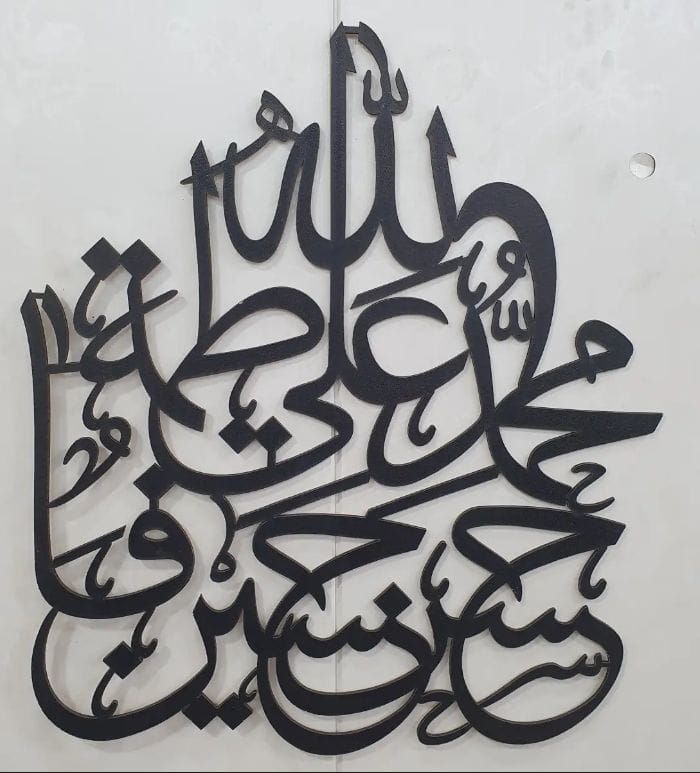 الله
محمّد علي فاطمة
حسن حسين